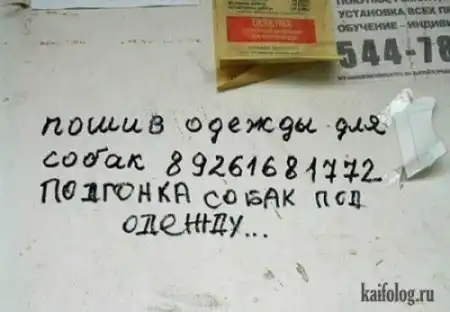 УСТАНОВКА ВСЕХ
ОБУЧЕНИЕ - ИНДИВИ
544-78
пошив одежды для
собак 89261681772
ПОДГОНКА СОБАК ПОД
ОДЕЖДУ...
kaifolog.ru